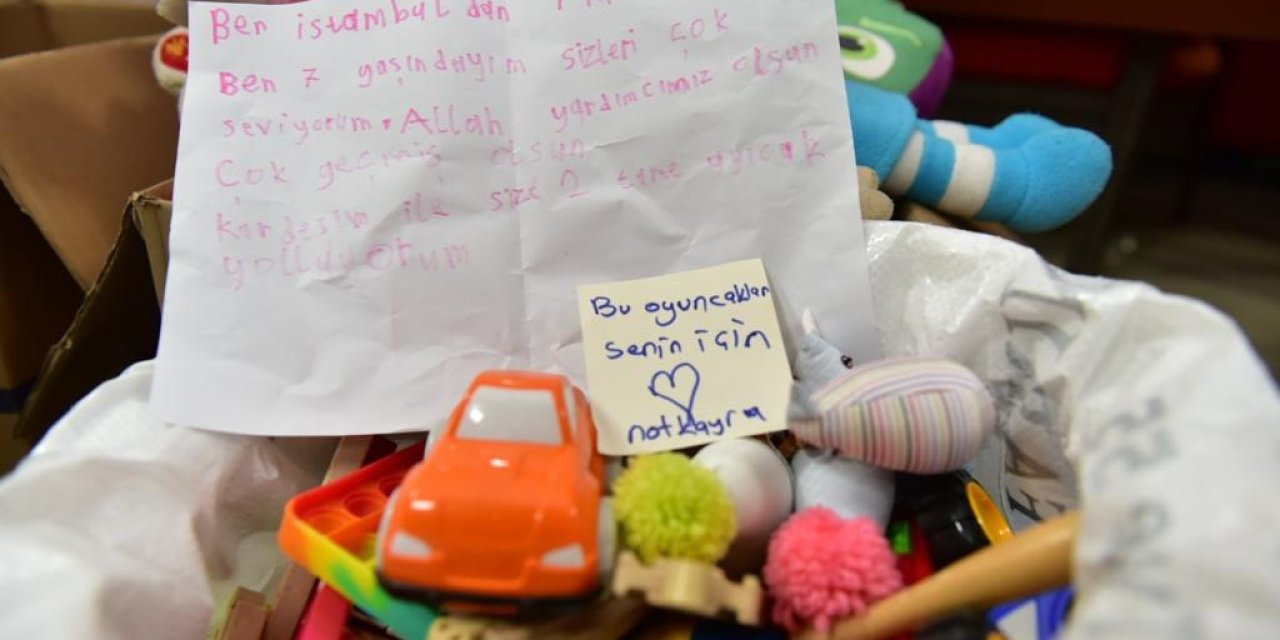 Ben istambul dan
Ben 7 yaşındayım sizleri çok
seviyorum. Allah yardımcımız olsun
Çok geçmiş olsun
Kardeşim ile size 2 tane ayıcık
yolluyorum
Bu oyuncaklar
senin için
not kayra